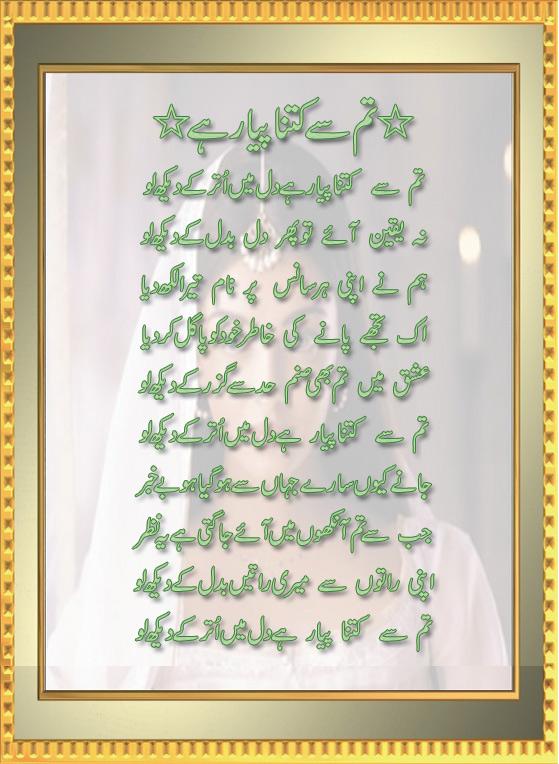 ☆تم سے کتنا پیار ہے☆
تم سے کتنا پیار ہے دل میں اُتر کے دیکھ لو
نہ یقین آئے تو پھر دل بدل کے دیکھ لو
ہم نے اپنی ہر سانس پر نام تیرا لکھ دیا
اک تجھے پانے کی خاطر خود کو پاگل کر دیا
عشق میں تم بھی صنم حد سے گزر کے دیکھ لو
تم سے کتنا پیار ہے دل میں اُتر کے دیکھ لو
جانے کیوں سارے جہاں سے ہو گیا ہو بے خبر
جب سے تم آنکھوں میں آئے جاگتی ہے یہ نظر
اپنی راتوں سے میری راتیں بدل کے دیکھ لو
تم سے کتنا پیار ہے دل میں اُتر کے دیکھ لو